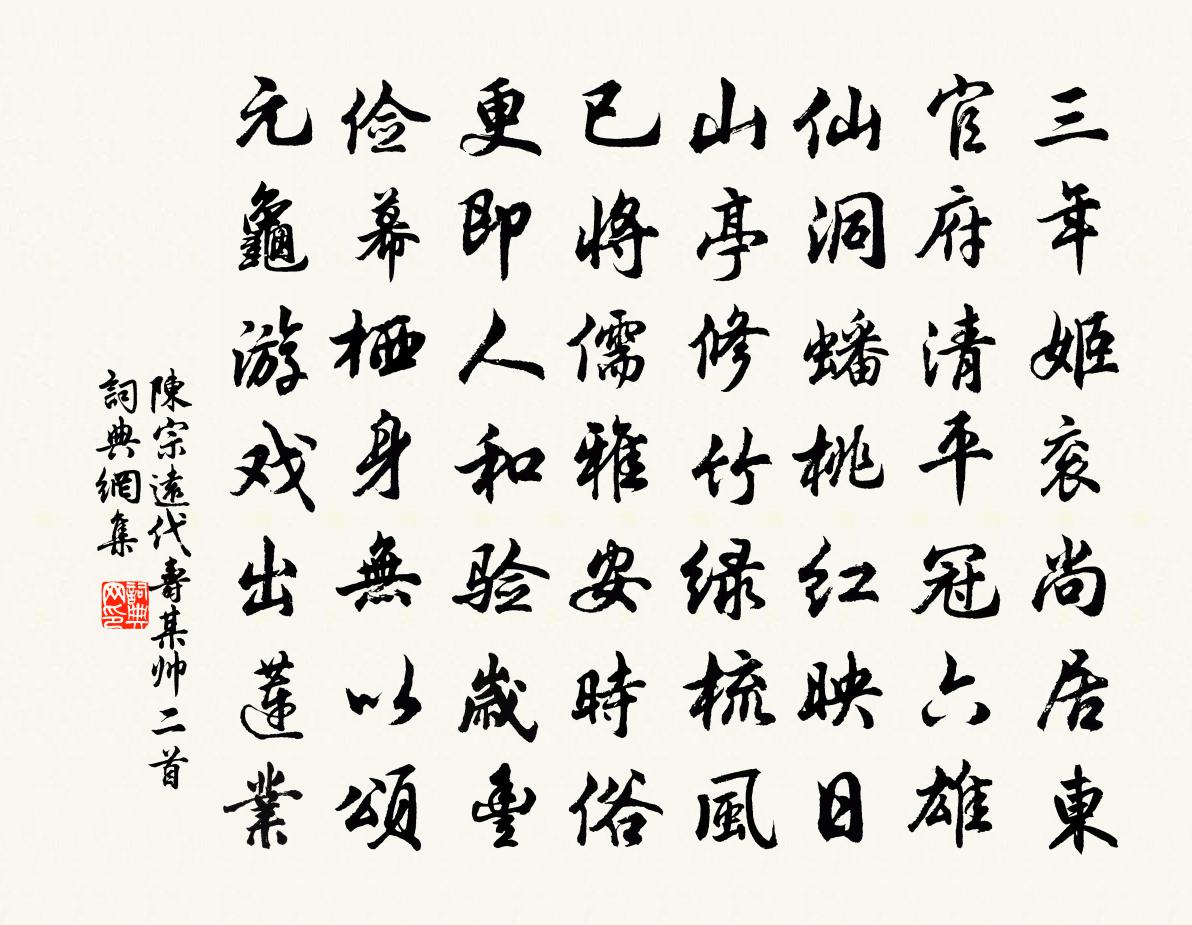 三年姬衮尚居東
官府清平冠六雄
仙洞蟠桃红映日
山亭修竹绿梳風
已將儒雅安時俗
更即人和验歲豊
俭幕栖身無以頌
元龜游戏出蓮業
陳宗遠代壽某帅二首
詞典網集
詞典网印